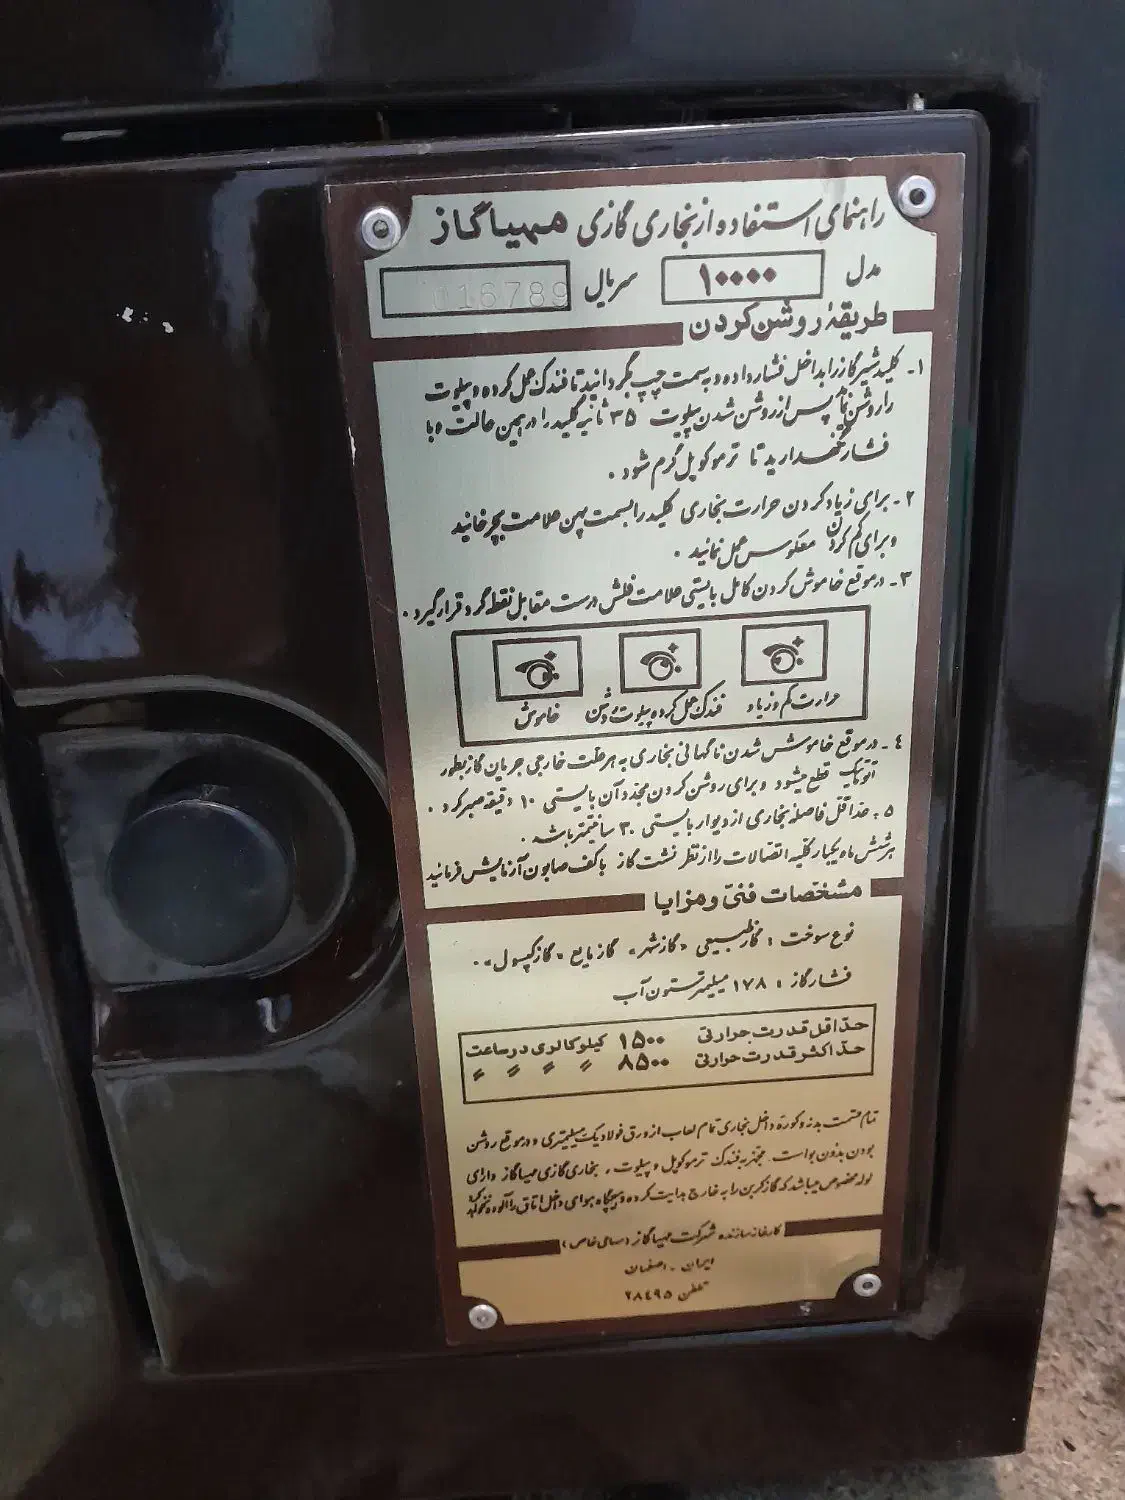 راهنمای استفاده از بخاری گازی مهیاگاز
مدل ۱۰۰۰۰ سریال 016789
طریقهٔ روشن کردن
۱- کلید شیر گاز را بداخل فشار داده و بسمت چپ بگردانید تا فندک عمل کرده و پیلوت
را روشن نماید پس از روشن شدن پیلوت ۳۵ ثانیه کلید را در همین حالت و با
فشار نگهدارید تا ترموکوپل گرم شود .
۲- برای زیاد کردن حرارت بخاری کلید را بسمت پهن علامت بچرخانید
و برای کم کردن معکوس عمل نمائید .
۳- در موقع خاموش کردن کامل بایستی علامت فلش درست مقابل نقطه گرد قرار گیرد .
حرارت کم و زیاد فندک عمل کرده و پیلوت روشن خاموش
٤- در موقع خاموش شدن ناگهانی بخاری به هر علت خارجی جریان گاز بطور
اتوماتیک قطع میشود و برای روشن کردن مجدد آن بایستی ۱۰ دقیقه صبر کرد .
۵- حداقل فاصله بخاری از دیوار بایستی ۳۰ سانتیمتر باشد .
هر شش ماه یکبار کلیه اتصالات را از نظر نشت گاز با کف صابون آزمایش فرمائید
مشخصات فنی و مزایا
نوع سوخت : گاز طبیعی «گاز شهر» گاز مایع «گاز کپسول» .
فشار گاز : ۱۷۸ میلیمتر ستون آب
حداقل قدرت حرارتی ۱۵۰۰ کیلو کالری در ساعت
حداکثر قدرت حرارتی ۸۵۰۰ 〃 〃 〃 〃
تمام قسمت بدنه و کوره داخل بخاری تمام لعاب از ورق فولاد یک میلیمتری و در موقع روشن
بودن بدون بو است . مجهز به فندک ترموکوپل و پیلوت ، بخاری گازی مهیاگاز دارای
لوله مخصوص میباشد که گاز کربن را به خارج هدایت کرده و هیچگاه هوای داخل اتاق را آلوده نخواهد کرد
کارخانه سازنده شرکت مهیاگاز (سهامی خاص)
ایران - اصفهان
تلفن ۲۸٤۹۵